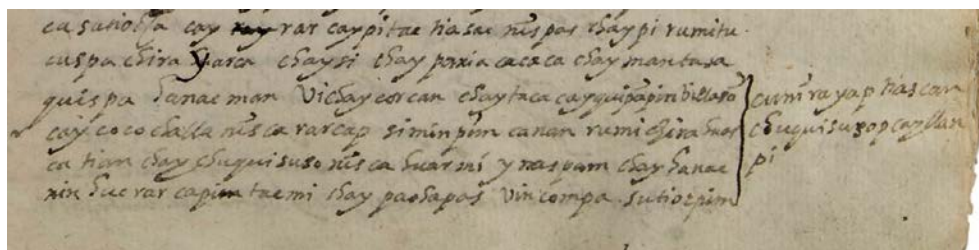 ca sutiocta cay rar caypitac tiasac nispas chaypi rumitu
cuspa chirayarca chaysi chay pariacacaca chaymantasa
quispa hanacman Vichaycorcan chaytaca cay quipapim villasā
cay cocochalla nisca rarcap siminpim canan rumi chirahuar
ca tian chay chuquisuso nisca huarmi ynaspam chay hanac
nin huc rarcapim tacmi chay pachapas Vincompa sutiocpim
cunirayap tiascan
chuquisusop cayllan
pi